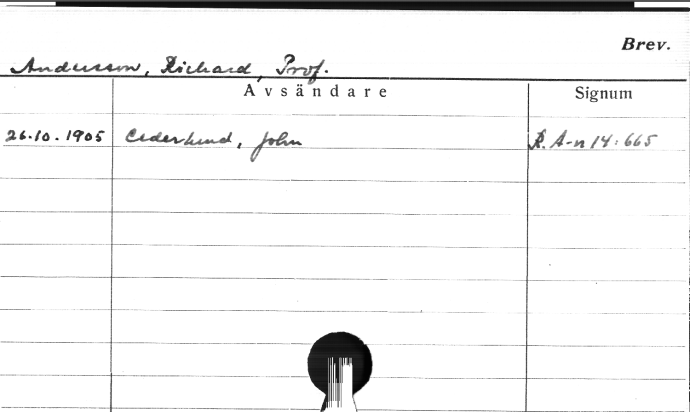 Brev.
Andersson, Richard, Prof.
Avsändare Signum
26.10.1905 Cederlund, John R. A-n 14:665